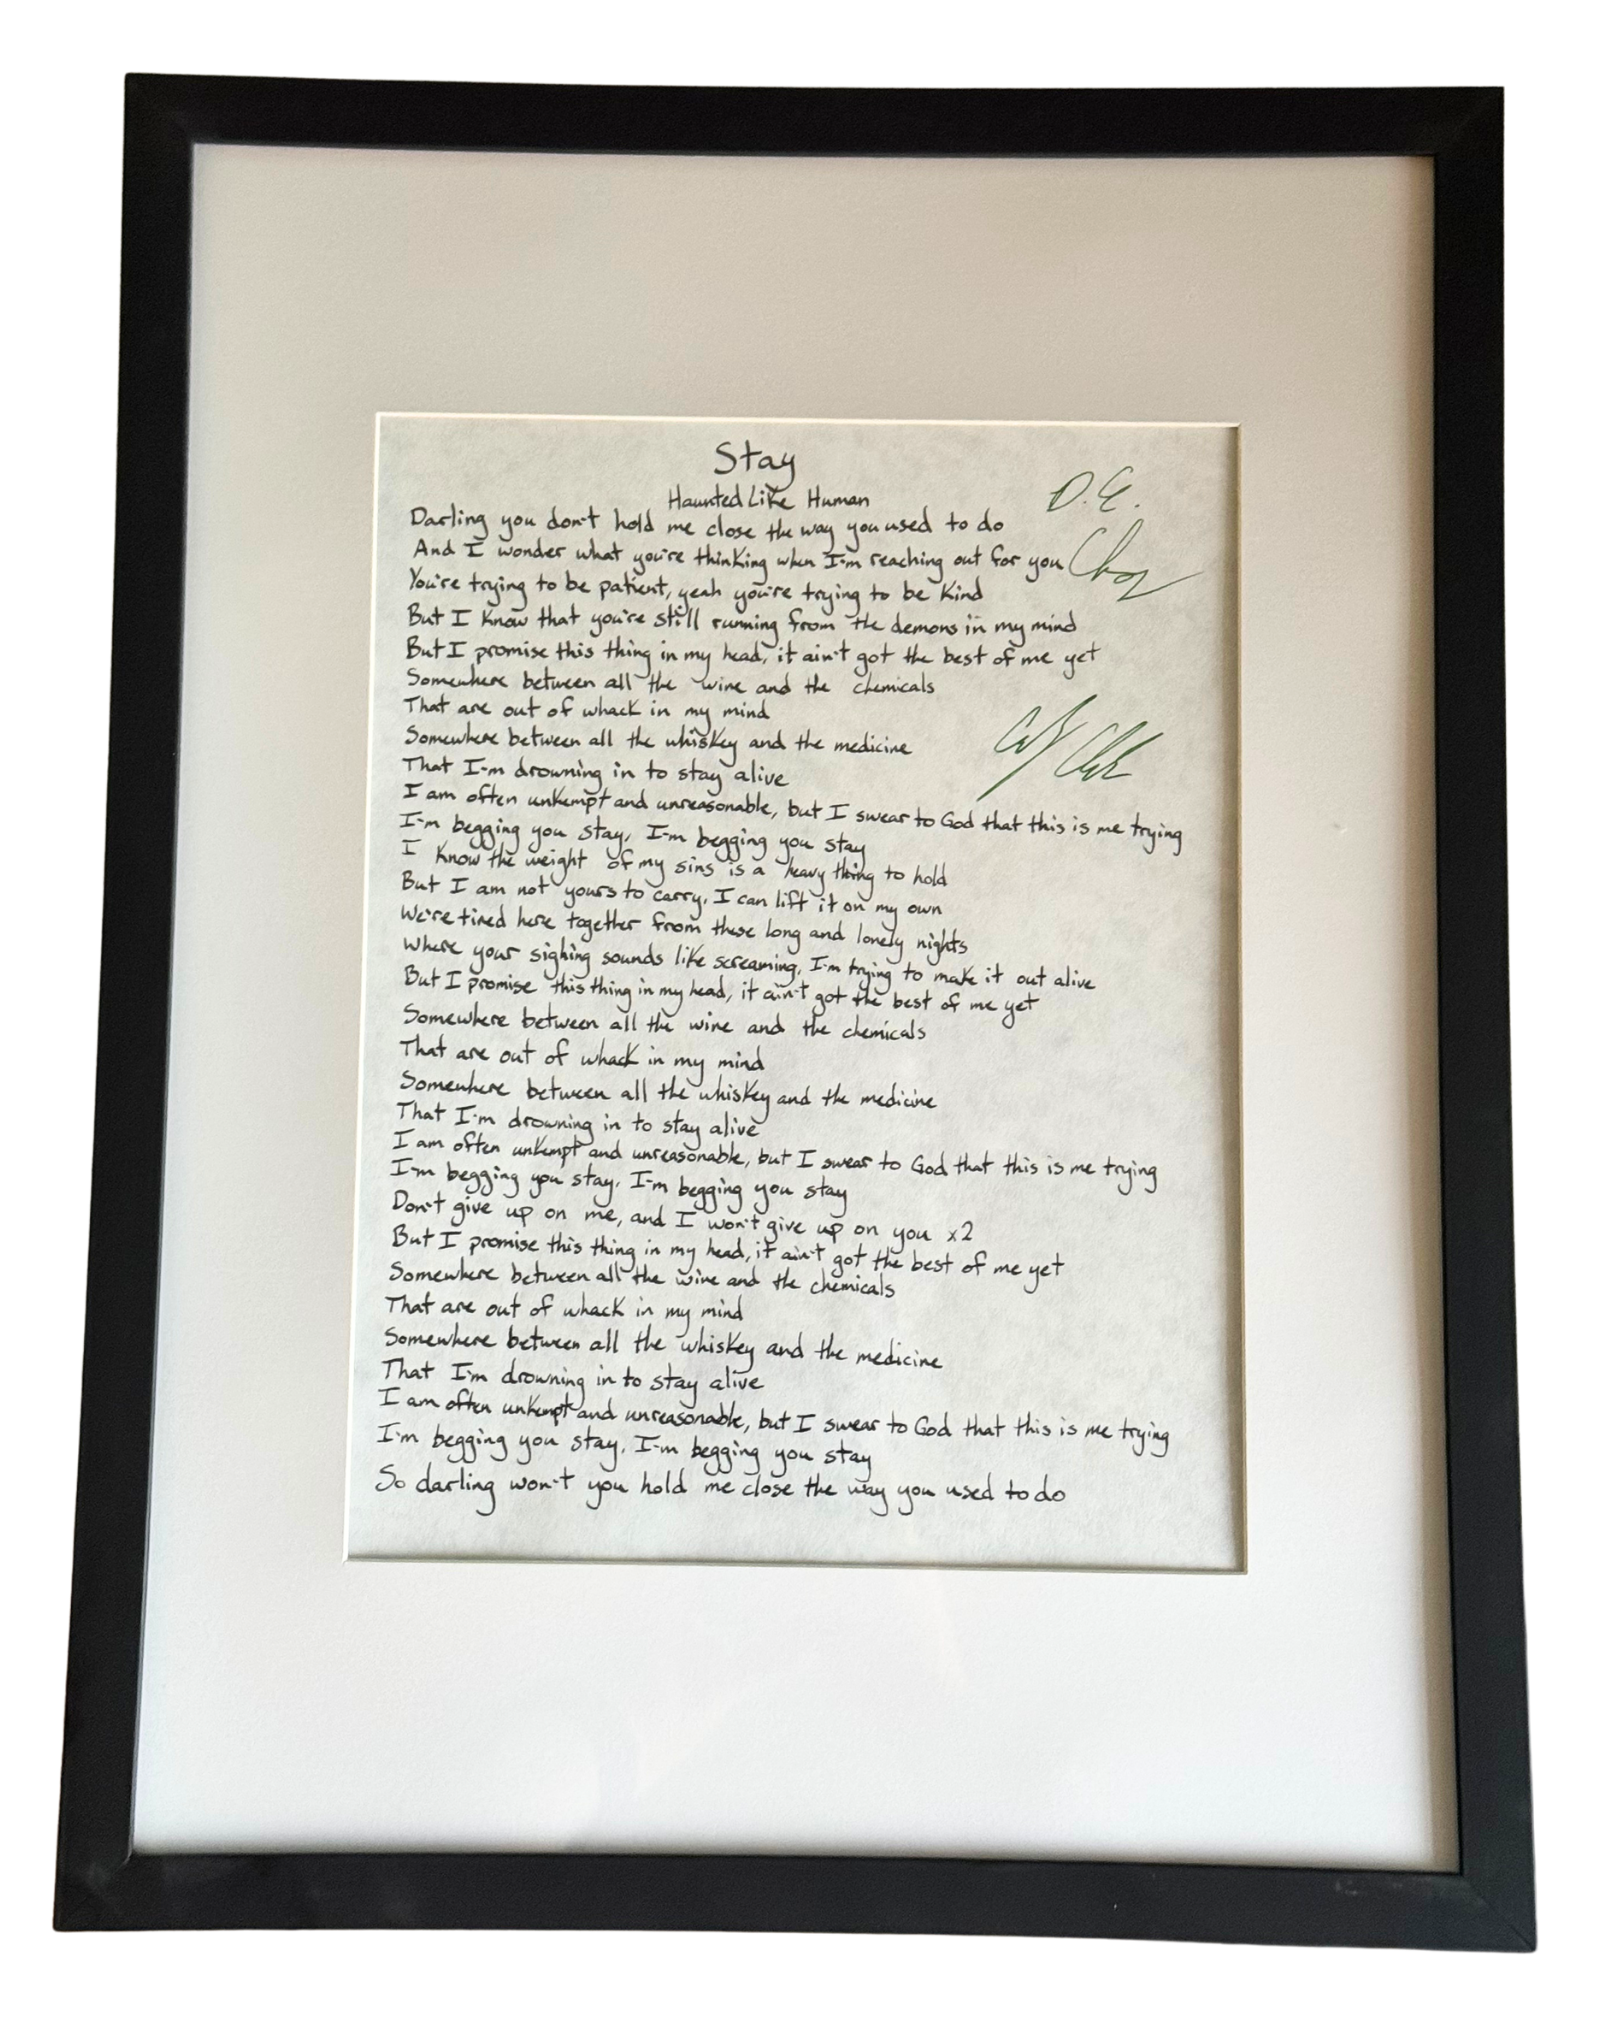 Stay
Haunted Like Human
Darling you don't hold me close the way you used to do
And I wonder what you're thinking when I'm reaching out for you
You're trying to be patient, yeah you're trying to be kind
But I know that you're still running from the demons in my mind
But I promise this thing in my head, it ain't got the best of me yet
Somewhere between all the wine and the chemicals
That are out of whack in my mind
Somewhere between all the whiskey and the medicine
That I'm drowning in to stay alive
I am often unkempt and unreasonable, but I swear to God that this is me trying
I'm begging you stay, I'm begging you stay
I know the weight of my sins is a heavy thing to hold
But I am not yours to carry, I can lift it on my own
We're tired here together from these long and lonely nights
Where your sighing sounds like screaming, I'm trying to make it out alive
But I promise this thing in my head, it ain't got the best of me yet
Somewhere between all the wine and the chemicals
That are out of whack in my mind
Somewhere between all the whiskey and the medicine
That I'm drowning in to stay alive
I am often unkempt and unreasonable, but I swear to God that this is me trying
I'm begging you stay, I'm begging you stay
Don't give up on me, and I won't give up on you x2
But I promise this thing in my head, it ain't got the best of me yet
Somewhere between all the wine and the chemicals
That are out of whack in my mind
Somewhere between all the whiskey and the medicine
That I'm drowning in to stay alive
I am often unkempt and unreasonable, but I swear to God that this is me trying
I'm begging you stay, I'm begging you stay
So darling won't you hold me close the way you used to do